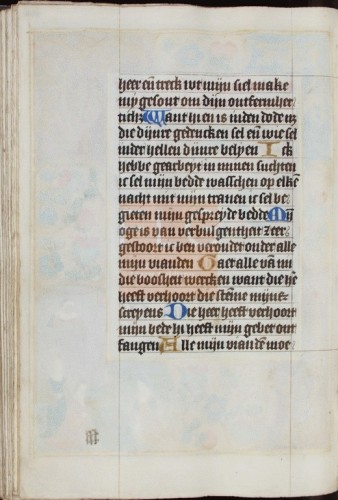 heer eñ treck wt mijn siel make
my gesont om dijn ontfermher
ticht Want hi en is inden dode nz
die dijnre gedencken sel eñ wie sel
inder hellen dinre belyen Ick
hebbe gearbeyt in minen suchten
ic sel mijn bedde wasschen op elkē
nacht mit minen tranen ic sel be
gieten mijn gespreyde bedde Mijn
oge is van verbulgentheit zeer
gestoort ic ben veroudet onder alle
mijn vianden Gaet alle vā mi
die boosheit wercken want die he
heeft verhoort die stēme mijns
screyens Die heer heeft verhoort
mijn bede hi heeft mijn gebet ont
fangen Alle mijn viandē moe